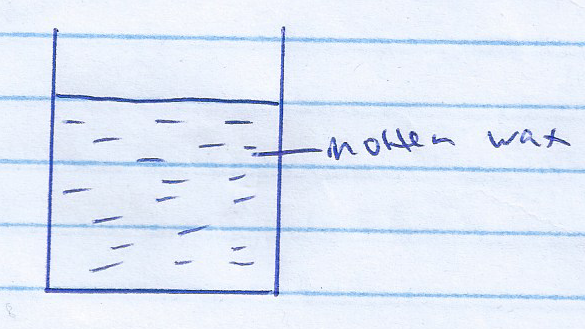 molten wax